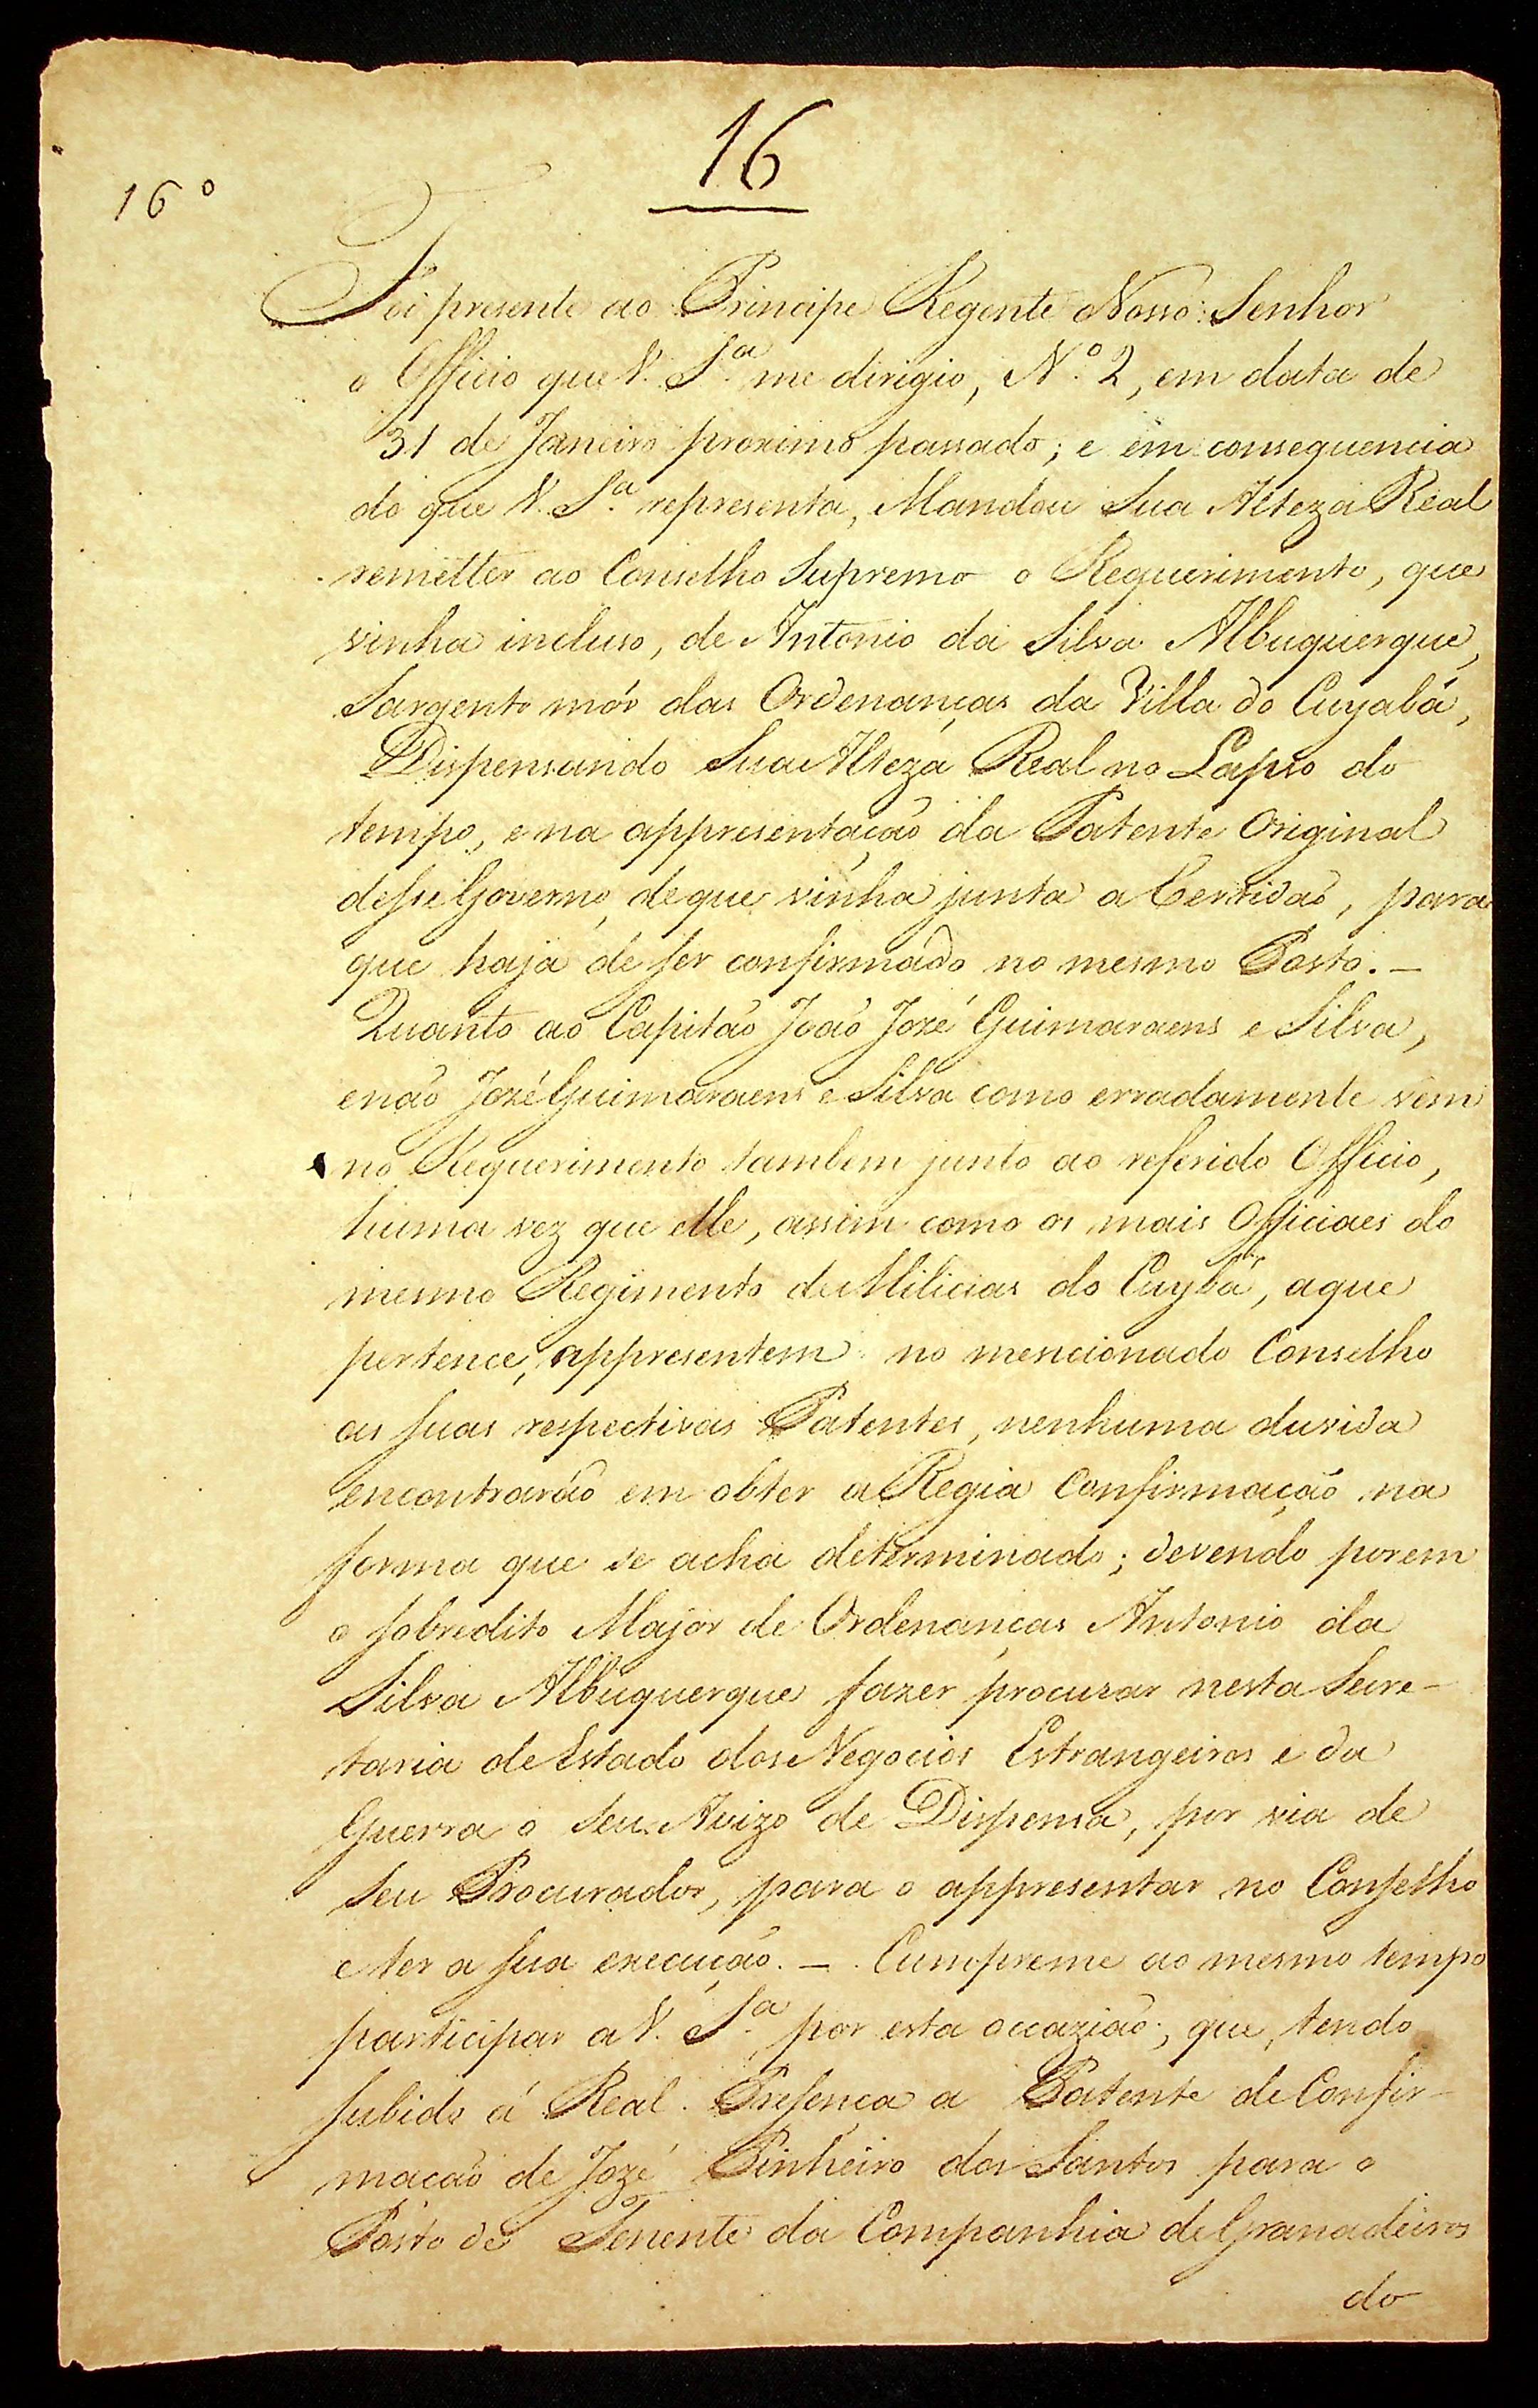 16
16º
Foi presente ao Principe Regente Nosso Senhor
o Officio que V. S.ª me dirigio, N.º 2, em data de
31 de Janeiro proximo passado; e em consequencia
do que V. S.ª representa, Mandou Sua Alteza Real
remetter ao Conselho Supremo o Requerimento, que
vinha incluso, de Antonio da Silva Albuquerque,
Sargento mór das Ordenanças da Villa do Cuyabá,
Dispensando Sua Alteza Real no Lapso do
tempo, e na appresentação da Patente Original
desse Governo, de que vinha junta a Certidaõ, para
que haja de ser confirmado no mesmo Posto. —
Quanto ao Capitaõ Joaõ Jozé Guimaraens e Silva,
e naõ Jozé Guimaraens e Silva como erradamente vem
no Requerimento tambem junto ao referido Officio,
huma vez que elle, assim como os mais Officiaes do
mesmo Regimento de Milicias do Cuybá, a que
pertence, appresentem no mencionado Conselho
as suas respectivas Patentes, nenhuma duvida
encontraráõ em obter a Regia Confirmação na
forma que se acha determinado; devendo porem
o sobredito Major de Ordenanças Antonio da
Silva Albuquerque fazer procurar nesta Secre-
taria de Estado dos Negocios Estrangeiros e da
Guerra o seu Avizo de Dispensa, por via de
seu Procurador, para o appresentar no Conselho
e ter a sua execução. — Cumpreme ao mesmo tempo
participar a V. S.ª por esta occaziaõ, que, tendo
subido á Real Presença a Patente de Confir-
macaõ de Jozé Pinheiro dos Santos para o
Posto de Tenente da Companhia de Granadeiros
do